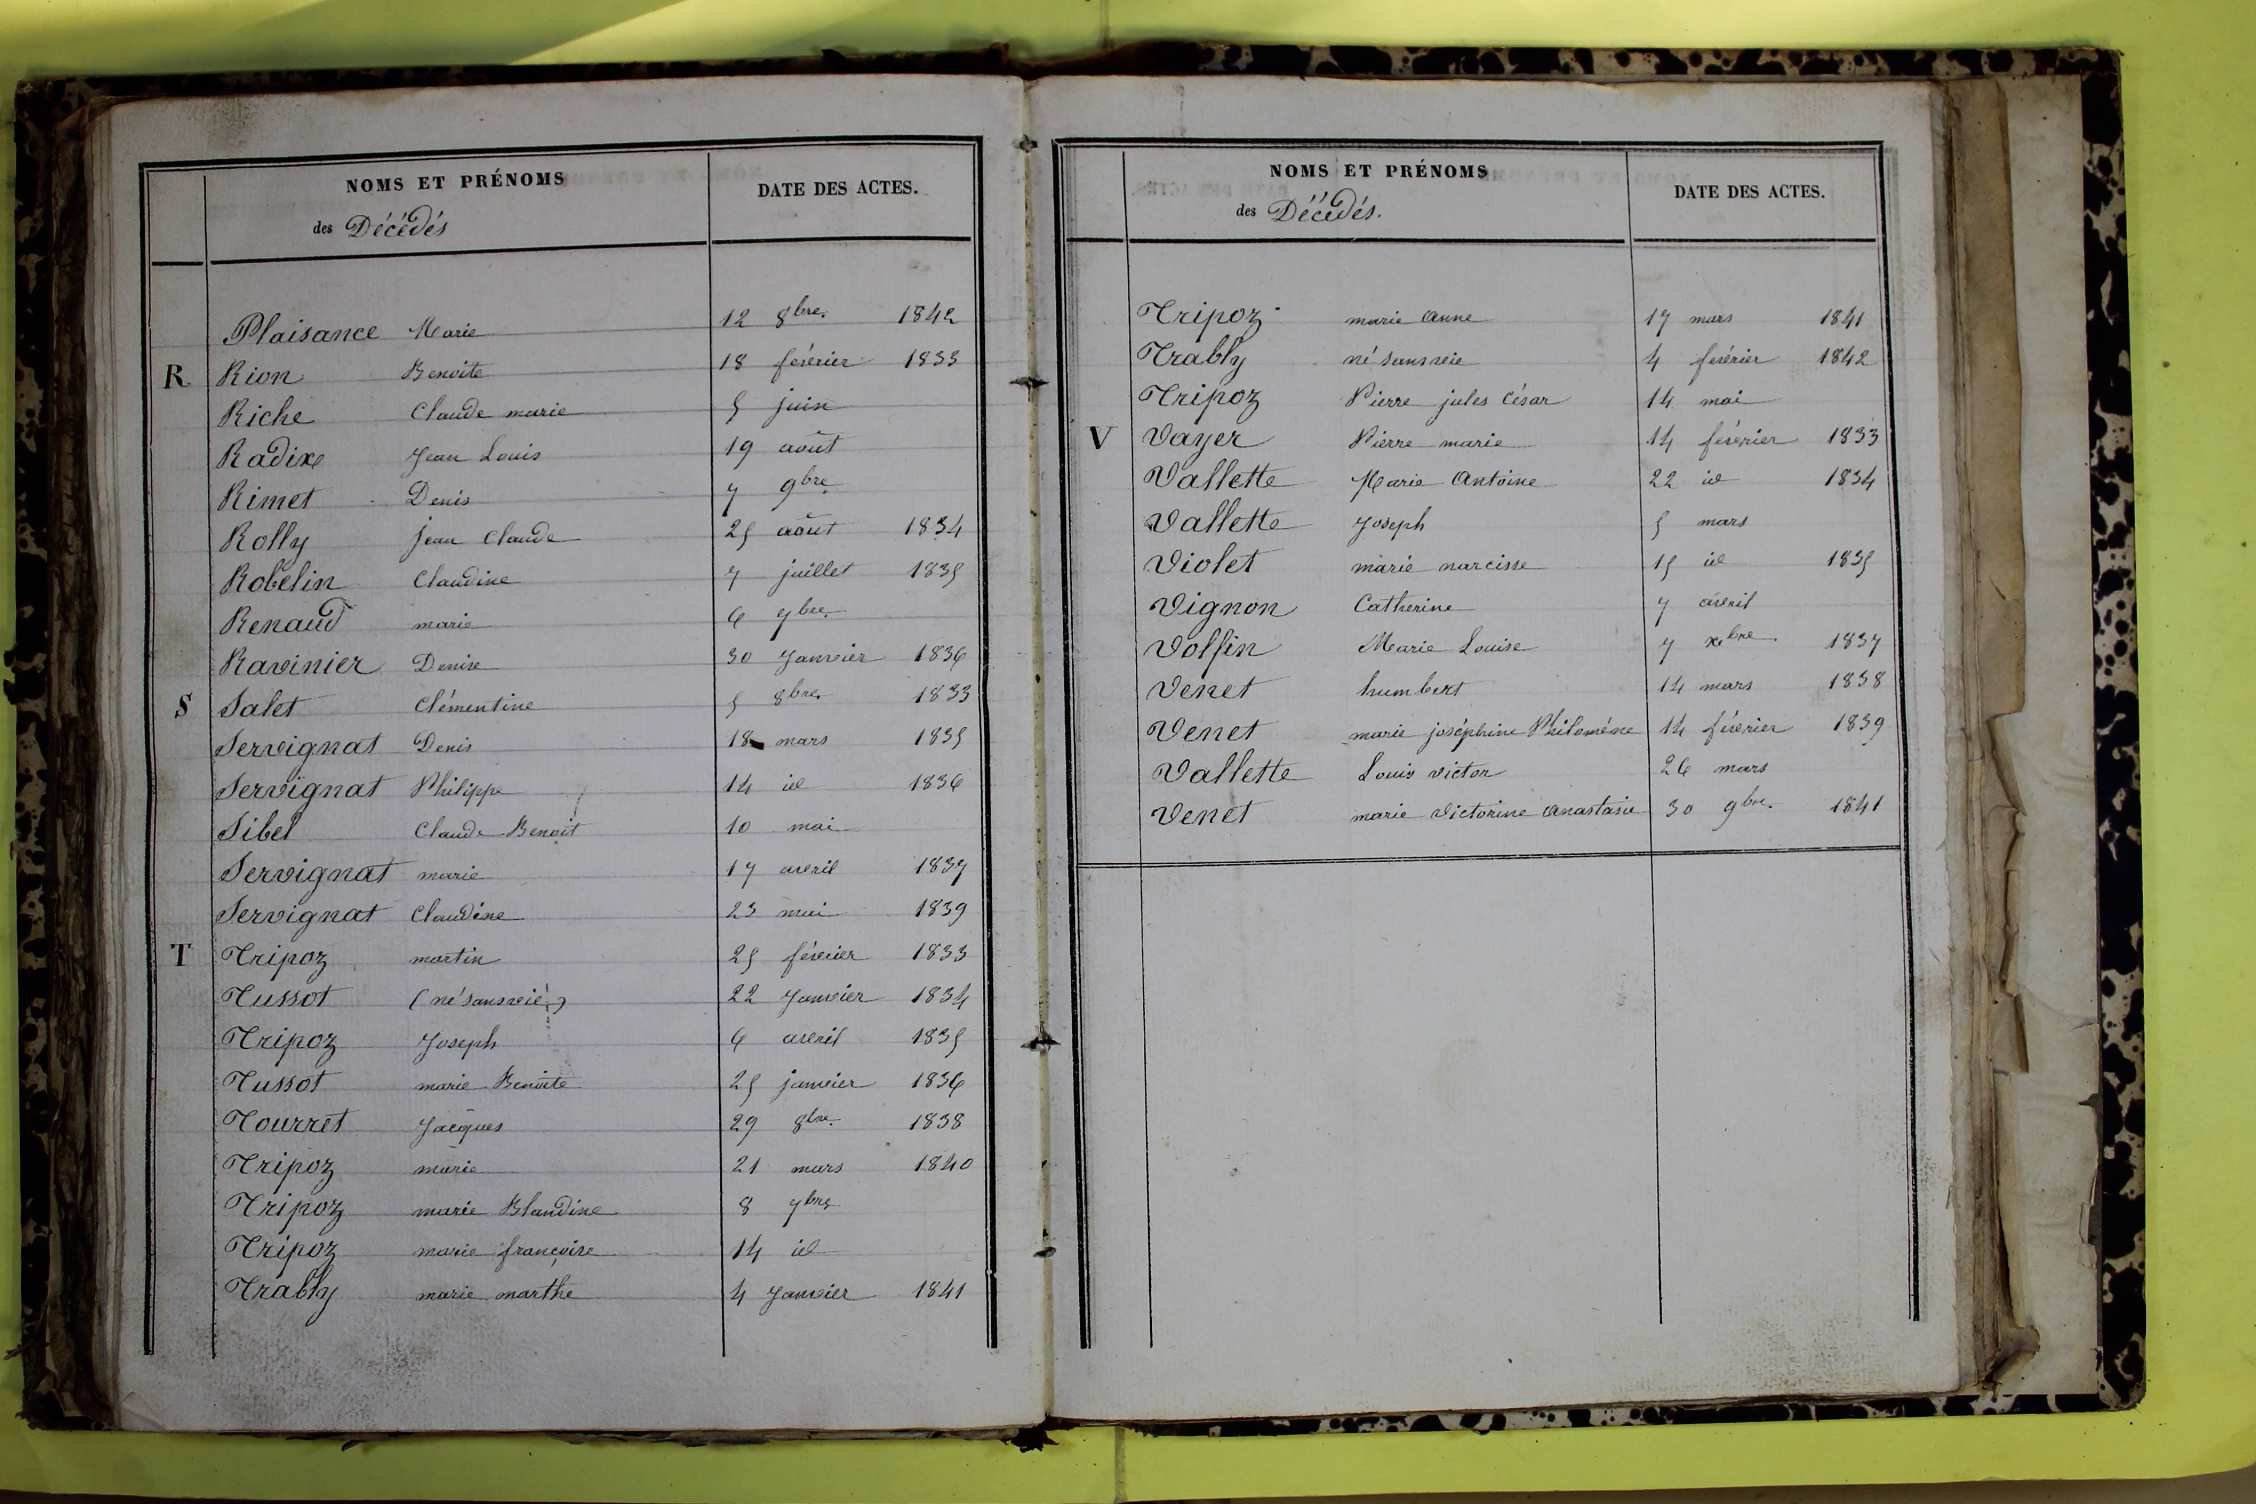 NOMS ET PRÉNOMS
des Décédés
DATE DES ACTES.
Plaisance Marie 12 8bre. 1842
R Rion Benoite 18 février 1833
Riche Claude marie 5 juin
Radix Jean Louis 19 août
Rimet Denis 7 9bre
Rolly jean Claude 25 août 1834
Robelin Claudine 7 juillet 1835
Renaud marie 6 7bre.
Ravinier Denise 30 Janvier 1836
S Salet Clémentine 5 8bre. 1833
Servignat Denis 18 mars 1835
Servignat Philippe 14 id 1836
Sibel Claude Benoit 10 mai
Servignat marie 17 avril 1837
Servignat Claudine 23 mai 1839
T Tripoz martin 25 février 1833
Tussot (né sans vie) 22 Janvier 1834
Tripoz Joseph 6 avril 1835
Tussot marie Benoite 25 janvier 1836
Tourret Jacques 29 8bre. 1838
Tripoz marie 21 mars 1840
Tripoz marie Blandine 8 7bre
Tripoz marie françoise 14 id
Trably marie marthe 4 Janvier 1841
NOMS ET PRÉNOMS
des Décédés.
DATE DES ACTES.
Tripoz marie anne 17 mars 1841
Trably né sans vie 4 février 1842
Tripoz Pierre jules César 14 mai
V Vayer Pierre marie 14 février 1833
Vallette Marie Antoine 22 id 1834
Vallette Joseph 5 mars
Violet marie narcisse 15 id 1835
Vignon Catherine 7 avril
Volfin Marie Louise 7 xbre 1837
Venet humbert 14 mars 1838
Venet marie joséphine Philomène 14 février 1839
Vallette Louis victor 26 mars
Venet marie Victorine Anastasie 30 9bre. 1841